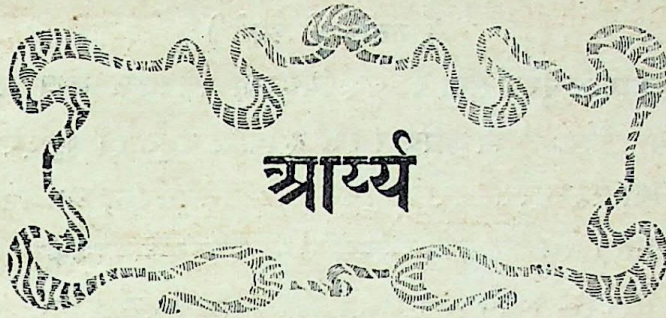 आर्य्य